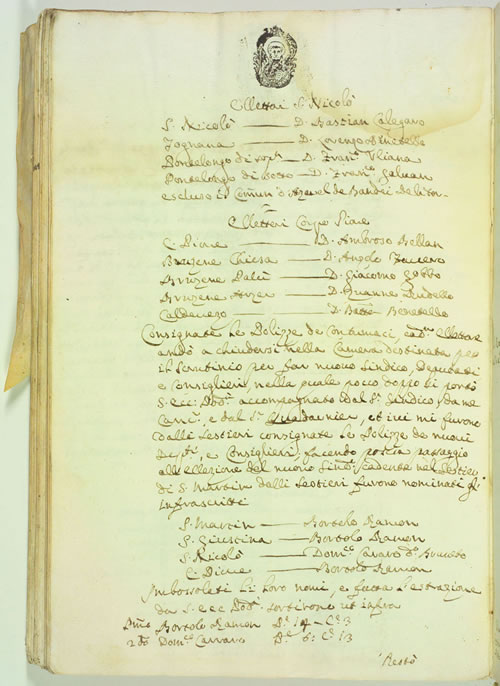 Elettori S. Nicolò
S. Nicolò — D. Bastian Calegaro
Tognana — D. Lorenzo
Pontelongo di — D. Fran.co Uliana
Pontelongo di — D. Fran.co Galvan
escluso il Comun d'Arzarel de Bandei
Elletteri Campo Piove
C. Piove — D. Ambroso Bellan
Bruzene Chiesa — D. Angelo
Bruzene Palù — D. Giacomo Gobbo
Bruzene Arzer — D. Zuanne
— D. Batta Benetello
Consignate le Polizze de Contumaci, ed. Elettore
andò a chiudersi nella Camera destinata per
il scrutinio per far nuovo Sindico, Deputati
e Consiglieri nella quale poco doppo si portò
S. Ecc. Pod.tà accompagnato dal S.r Sindico, da me
Canc.r, e dal S.r, et ivi mi furono
dalli Sestieri consignate le Polizze de nuovi
Dep.ti, e Consiglieri, facendo poscia passaggio
all'ellezione del nuovo Sind.co cadente nel Sestier
di S. Martin dalli Sestieri furono nominati gl'
infrascritti
S. Martin — Bortolo Ramon
S. Giustina — Bortolo Ramon
S. Nicolò — Dom.co Cavaro
C. Piove — Bortolo Ramon
Imbossolati li loro nomi, e fatta l'estrazione
da S. Ecc. Pod.tà sortirono ut infra
P.mo Bortolo Ramon P. 14 - C. 3
2.do Dom.co Carraro P. 6: C. 13
Restò